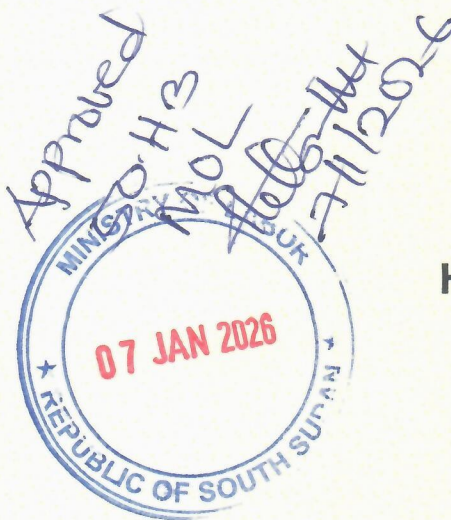 Approved
MOL
7/1/2026
MINISTRY OF LABOUR
07 JAN 2026
★ REPUBLIC OF SOUTH SUDAN ★
H